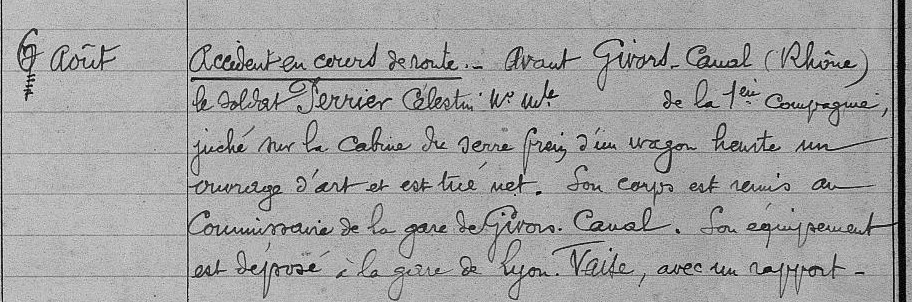 6 Août
Accident en cours de route. – Avant Givors-Canal (Rhône)
le soldat Perrier Célestin N° Mle de la 1ère Compagnie,
juché sur la cabine du serre frein d'un wagon heurte un
ouvrage d'art et est tué net. Son corps est remis au
Commissaire de la gare de Givors-Canal. Son équipement
est déposé à la gare de Lyon-Vaise, avec un rapport –